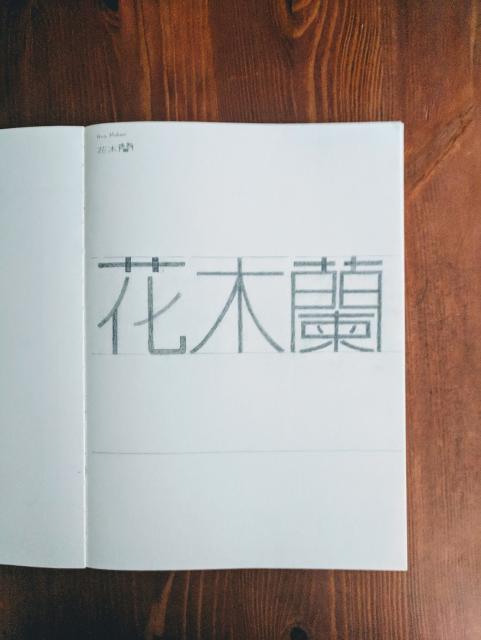 Hua Mulan
花木蘭
花木蘭